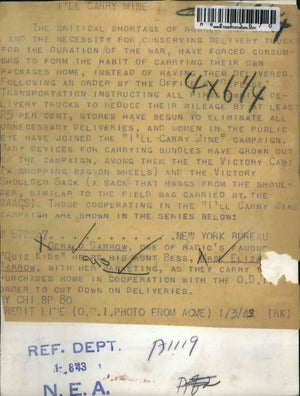 I'LL CARRY MINE
THE CRITICAL SHORTAGE OF
AND THE NECESSITY FOR CONSERVING DELIVERY TRUCKS
FOR THE DURATION OF THE WAR, HAVE FORCED CONSUM-
ERS TO FORM THE HABIT OF CARRYING THEIR OWN
PACKAGES HOME, INSTEAD OF HAVING THEM DELIVERED.
FOLLOWING AN ORDER BY THE
TRANSPORTATION INSTRUCTING ALL
DELIVERY TRUCKS TO REDUCE THEIR MILEAGE BY AT LEAST
25 PER CENT, STORES HAVE BEGUN TO ELIMINATE ALL
UNNECESSARY DELIVERIES, AND WOMEN IN THE PUBLIC
EYE HAVE JOINED THE "I'LL CARRY MINE" CAMPAIGN.
MANY DEVICES FOR CARRYING BUNDLES HAVE GROWN OUT
OF THE CAMPAIGN, AMONG THEM THE THE VICTORY CART
(A SHOPPING BAG ON WHEELS) AND THE VICTORY
SHOULDER SACK (A SACK THAT HANGS FROM THE SHOUL-
DER, SIMILAR TO THE FIELD BAG CARRIED BY THE
WAACS). THOSE COOPERATING IN THE "I'LL CARRY MINE
CAMPAIGN ARE SHOWN IN THE SERIES BELOW:
NEW YORK BUREAU
GERALD DARROW, ONE OF RADIO'S FAMOUS
"QUIZ KIDS" HELPS HIS AUNT BESS,
DARROW, WITH HER MARKETING, AS THEY CARRY
PURCHASES HOME IN COOPERATION WITH THE O.D.T.
ORDER TO CUT DOWN ON DELIVERIES.
NY CHI BP 80
CREDIT LINE (O.W.I. PHOTO FROM ACME) 1/3/43 (BK)
4x6 1/4
REF. DEPT.
N.E.A.